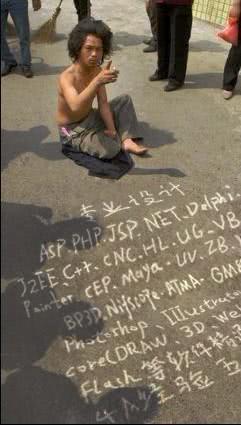 专业设计
ASP.PHP.JSP.NET.Delphi.
J2EE.C++.CNC.HL.UG-VB
Painter CEP.Maya UV.ZB.V
BP3D.Nifslope.ATMA.GMA
Photoshop、Illustrator
CorelDRAW、3D.We
Flash